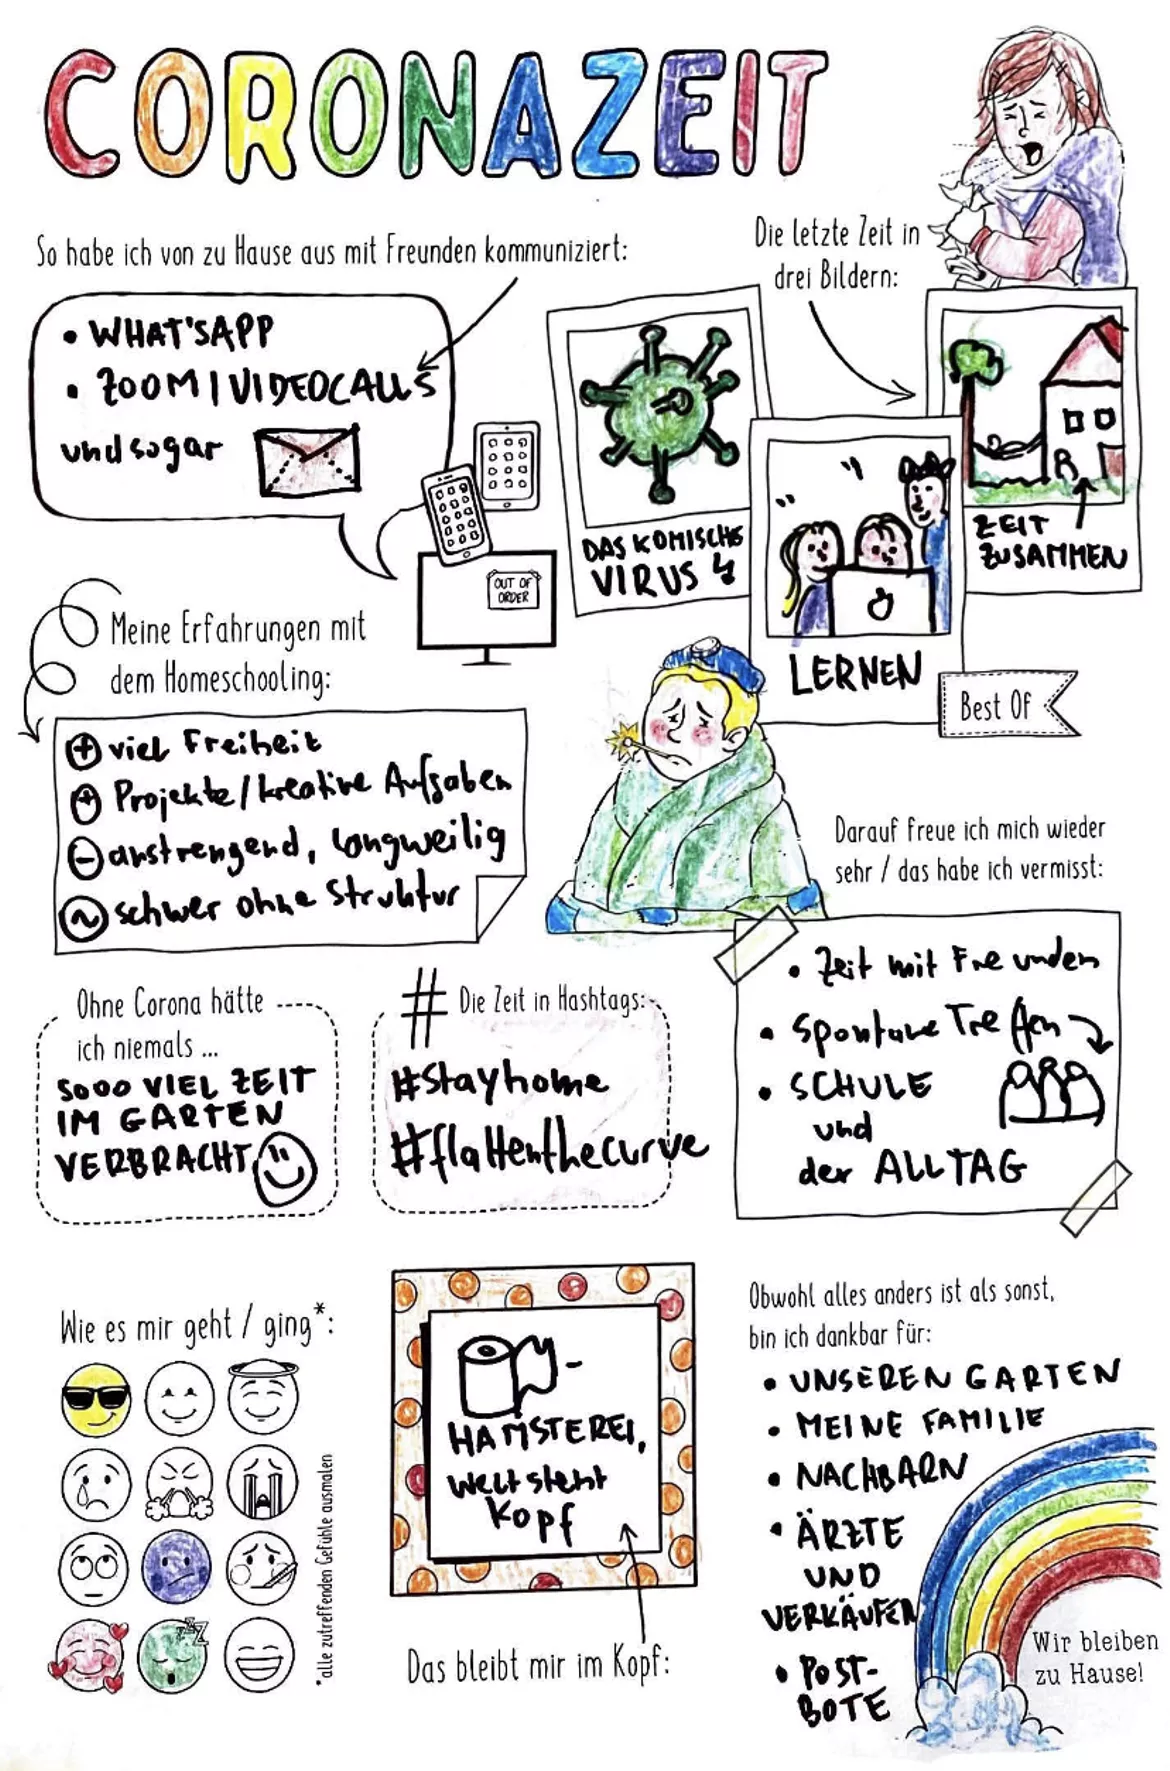 CORONAZEIT
So habe ich von zu Hause aus mit Freunden kommuniziert:
• WHAT'SAPP
• ZOOM | VIDEOCALLS
und sogar
OUT OF
ORDER
Die letzte Zeit in
drei Bildern:
DAS KOMISCHE
VIRUS
LERNEN
ZEIT
ZUSAMMEN
Best Of
Meine Erfahrungen mit
dem Homeschooling:
+ viel Freiheit
+ Projekte/kreative Aufgaben
- anstrengend, langweilig
~ schwer ohne Struktur
Darauf freue ich mich wieder
sehr / das habe ich vermisst:
• Zeit mit Freunden
• Spontane Treffen
• SCHULE
und
der ALLTAG
Ohne Corona hätte
ich niemals ...
SOOO VIEL ZEIT
IM GARTEN
VERBRACHT
# Die Zeit in Hashtags:
#stayhome
#flattenthecurve
Wie es mir geht / ging*:
zzz
*alle zutreffenden Gefühle ausmalen
-
HAMSTEREI,
Welt steht
Kopf
Das bleibt mir im Kopf:
Obwohl alles anders ist als sonst,
bin ich dankbar für:
• UNSEREN GARTEN
• MEINE FAMILIE
• NACHBARN
• ÄRZTE
UND
VERKÄUFER
• POST-
BOTE
Wir bleiben
zu Hause!